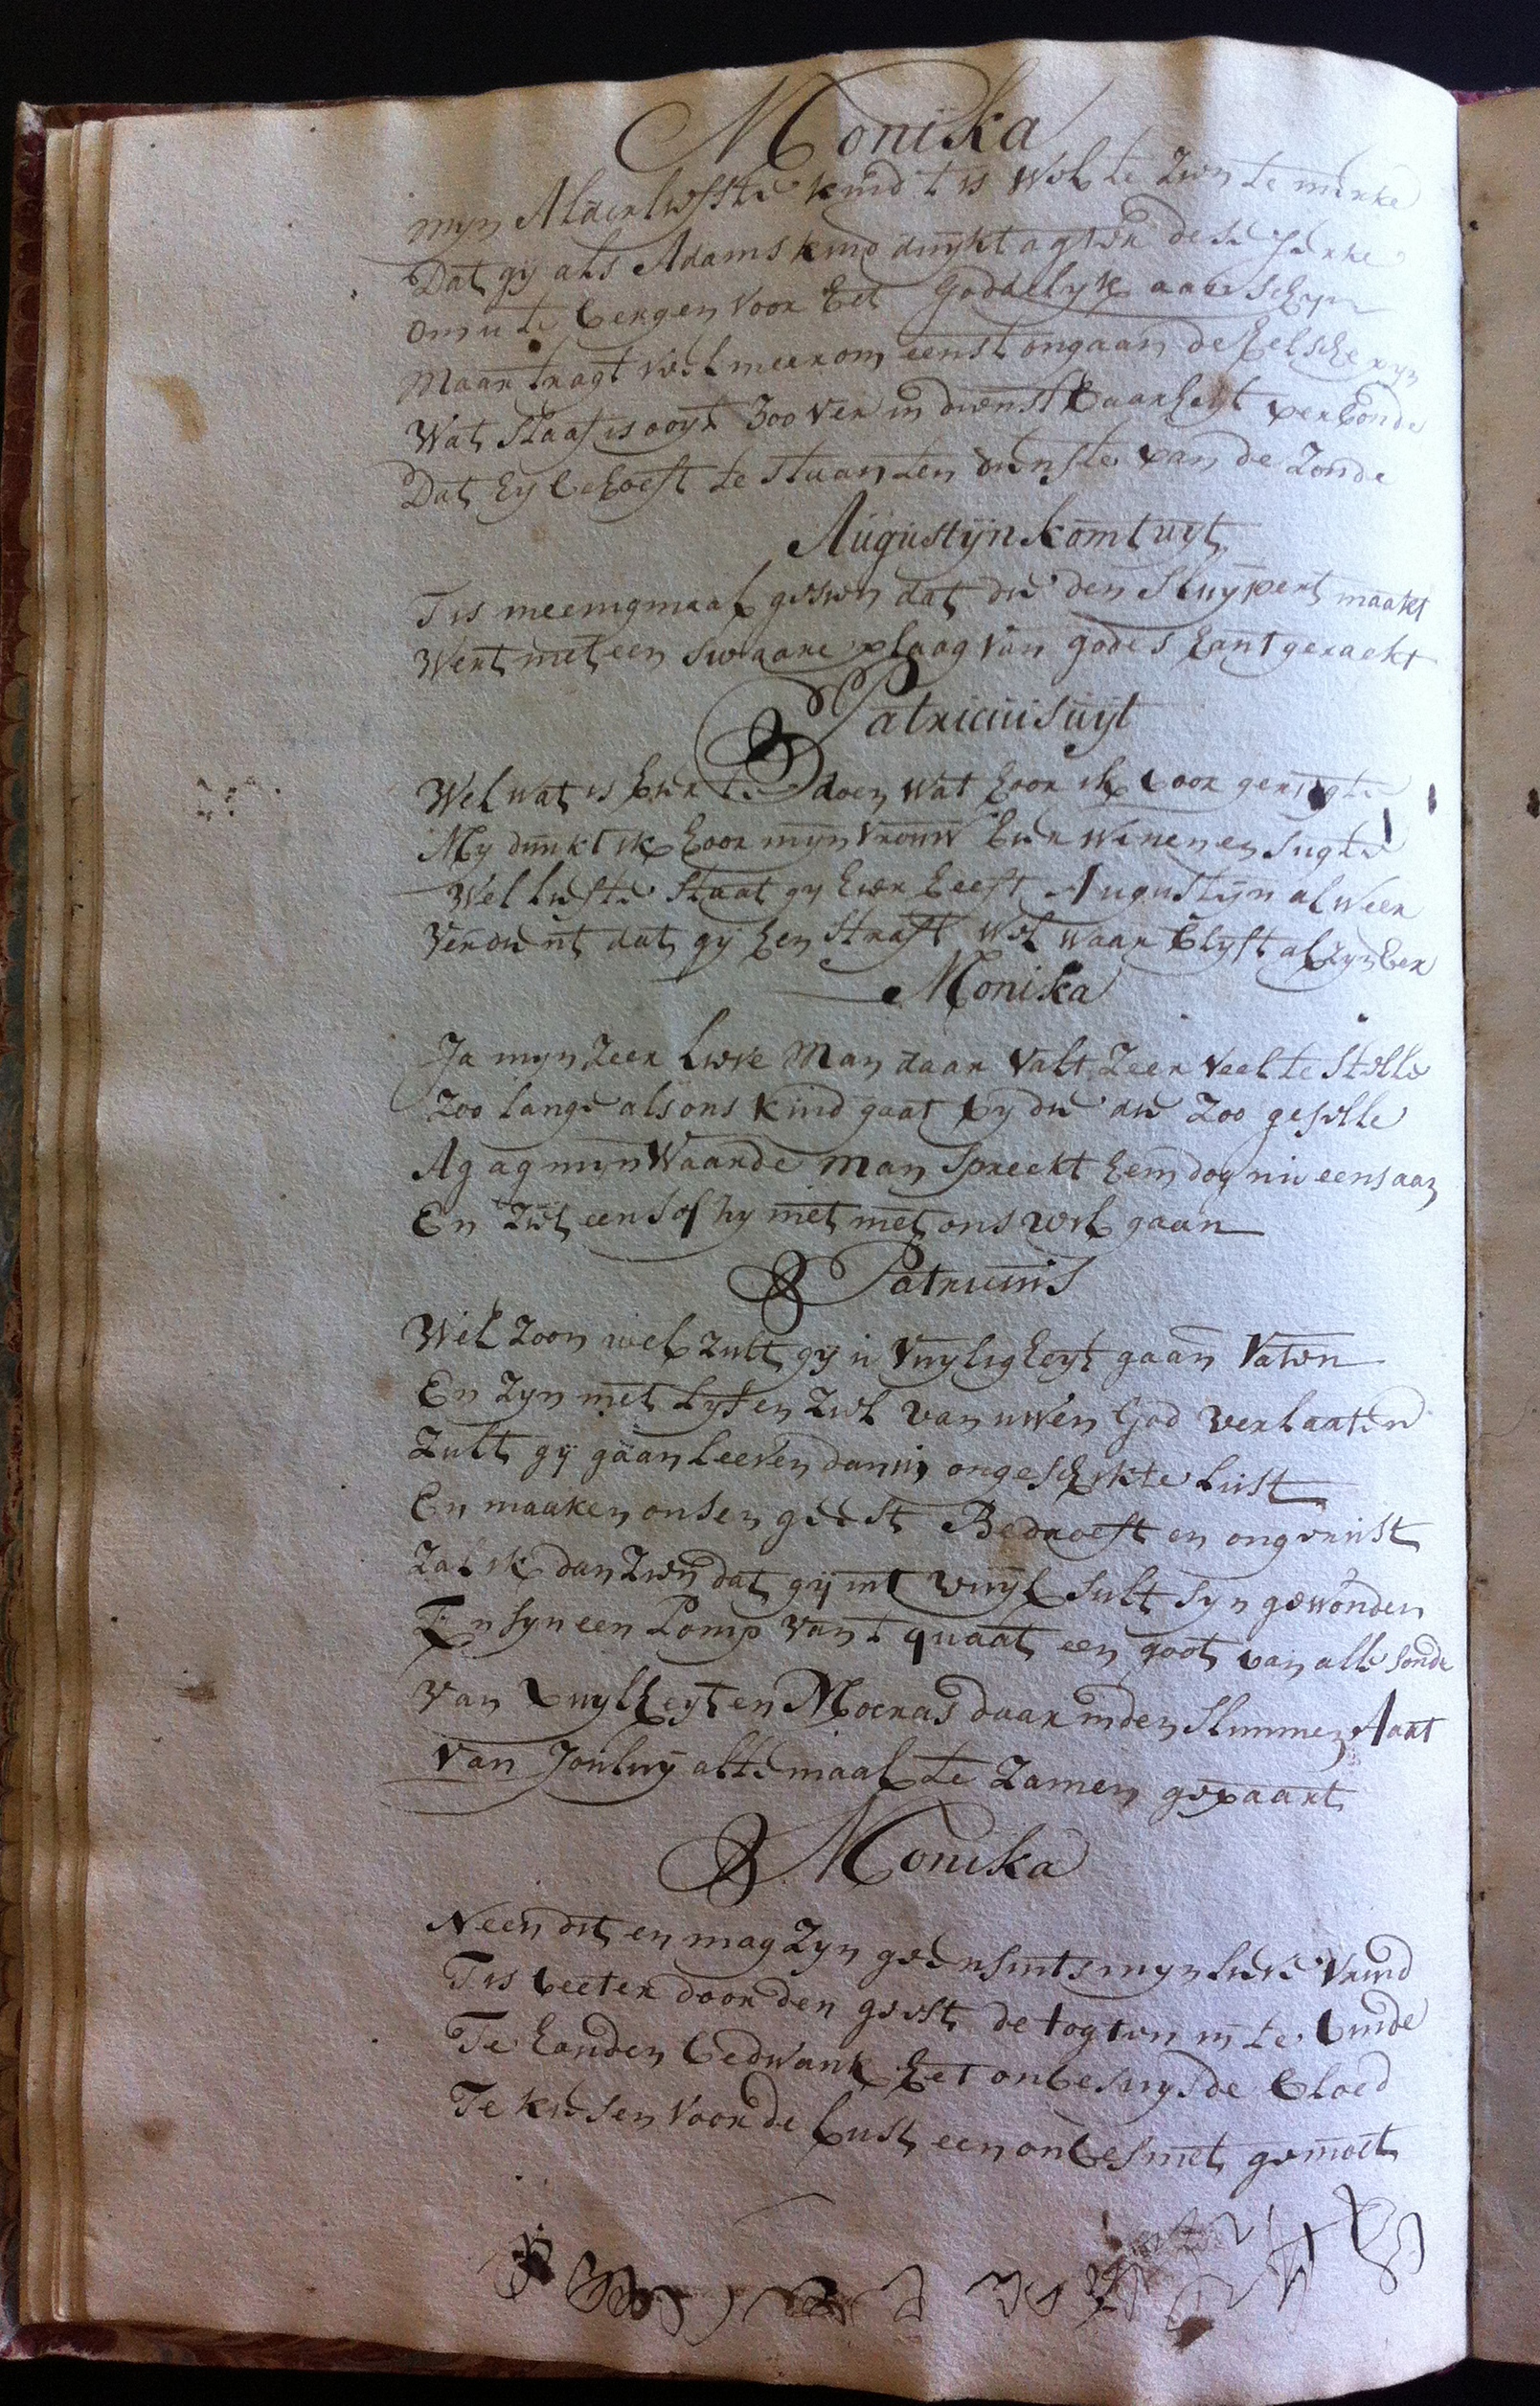 Monika
mijn Alderliefste kind t is wel te zien te merke
Dat gij als Adams kind duijkt agter dese
om u te bergen voor het goddelijk aanschijn
Maar tragt veel meer om eens t ongaan de helsche pijn
Wat slaaf is ooijt zoo ver in dienstbaarheijt verbonde
Dat hij behoeft te staan ten dienste van de zonde
Augustijn komt uijt
T is meenigmaal gesien dat die den sluijpert maakt
Wert met een swaare plaag van godes hant geraekt
Patricius uijt
Wel wat is hier te doen wat hoor ik voor gerugte
Mij dunkt ik hoor mijn vrouw hier weenen en sugte
Wel liefste staat gij hier heeft Augustijn alweer
Verdient dat gij hem straft wel waar blijft al zijn eer
Monika
Ja mijn zeer lieve Man daar valt zeer veel te stelle
Zoo lange als ons kind gaat bij die die zoo geselle
Ag ag mijn Waarde Man spreekt hem dog nu eens aan
En ziet eens of hij niet met ons wil gaan
Patricius
Wel zoon wel zult gij u vuijligheijt gaan vaten
En zijn met lijf en ziel van uwen God verlaaten
Zult gij gaan leeven dan in ongeschikte lust
En maaken onsen geest Bedroeft en ongerust
Zal ik dan zien dat gij int vuijl sult sijn gewonden
En sijn een Pomp van t quaat een goot van alle sonde
van vuijlheijt en Moeras daar in den slimmen Aart
van Jonluij altemaal te zamen gepaart
Monika
Neen dit en mag zijn geensints mijn lieve vrind
T is beeter door den geest de togten in te binde
Te houden bedwank het onbesuijsde bloed
Te kiesen voor de lust een onbesmet gemoet